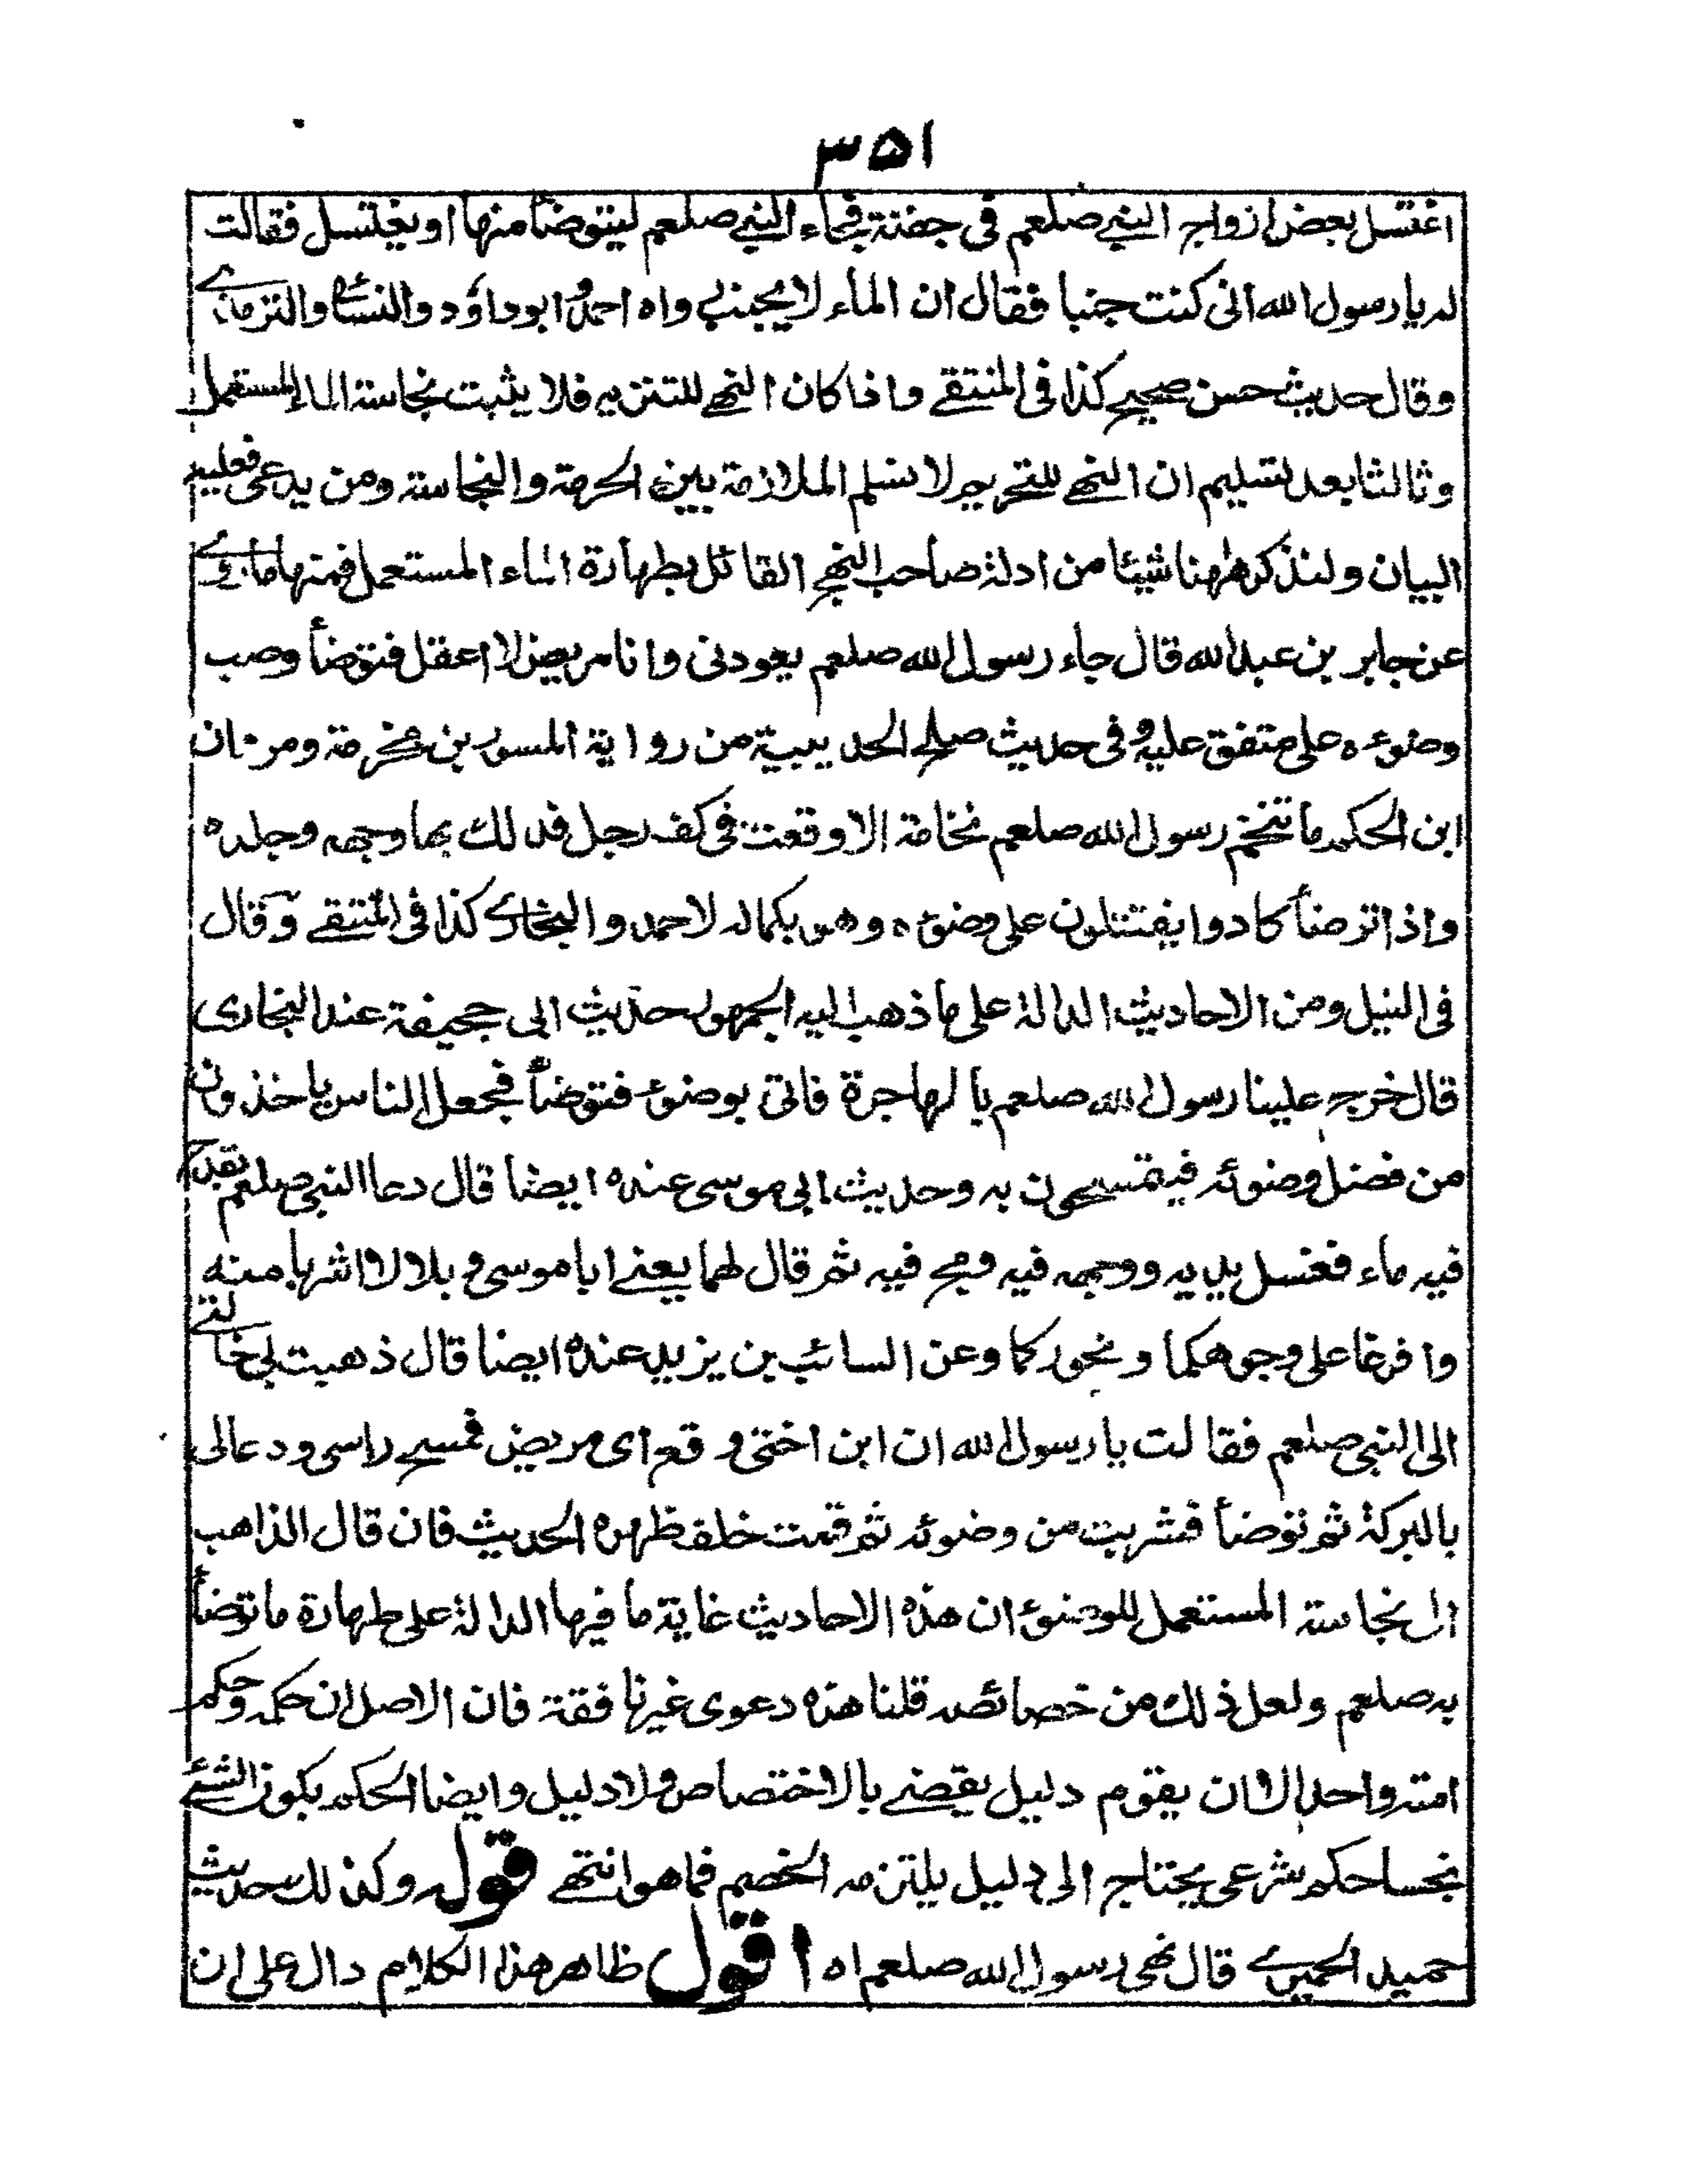 ٣٥١
اغتسل بعض ازواج النبي صلعم في جفنة فجاء النبي صلعم ليتوضأ منها او يغتسل فقالت
له يا رسول الله انى كنت جنبا فقال ان الماء لا يجنب رواه احمد وابوداؤد والنسائى والترمذے
وقال حديث حسن صحيح كذا فى المنتقے واذا كان النهے للتنزيه فلا يثبت نجاسة الماء المستعمل
وثالثا بعد تسليم ان النهے للتحريم لا نسلم الملازمة بين الحرمة والنجاسة ومن يدعى فعليه
البيان ولنذكر ههنا شيئا من ادلة صاحب النهج القائل بطهارة الماء المستعمل فمنها ما روے
عن جابر بن عبد الله قال جاء رسول الله صلعم يعودنى وانا مريض لا اعقل فتوضأ وصب
وضوءه على متفق عليه وفى حديث صلح الحديبية من رواية المسور بن مخرمة ومروان
ابن الحكم ما تنخم رسول الله صلعم نخامة الا وقعت فى كف رجل فدلك بها وجهه وجلده
واذا توضأ كادوا يقتتلون على وضوءه وهو بكماله لاحمد والبخارى كذا فى المنتقے وقال
فى النيل ومن الاحاديث الدالة على ما ذهب اليه الجمهور حديث ابى جحيفة عند البخارى
قال خرج علينا رسول الله صلعم بالهاجرة فاتى بوضوء فتوضأ فجعل الناس ياخذون
من فضل وضوئه فيتمسحون به وحديث ابى موسى عنده ايضا قال دعا النبى صلعم بقدح
فيه ماء فغسل يديه ووجهه فيه ومج فيه ثم قال لهما يعنے ابا موسى و بلالا اشربا منه
وافرغا على وجوهكما ونحوركما وعن السائب بن يزيد عنده ايضا قال ذهبت بى خالتے
الى النبى صلعم فقالت يا رسول الله ان ابن اختى وقع اى مريض فمسح راسى ودعا لى
بالبركة ثم توضأ فشربت من وضوئه ثم قمت خلف ظهره الحديث فان قال الذاهب
الى نجاسة المستعمل للوضوء ان هذه الاحاديث غاية ما فيها الدالة على طهارة ما توضأ
به صلعم ولعل ذلك من خصائصه قلنا هذه دعوى غير نافقة فان الاصل ان حكمه وحكم
امته واحد الا ان يقوم دليل يقضے بالاختصاص ولا دليل وايضا الحكم بكون الشئے
نجسا حكم شرعى يحتاج الى دليل يلتزمه الخصم فما هو انتهے قوله وكذلك حديث
حميد الحميرے قال نهى رسول الله صلعم اه اقول ظاهر هذا الكلام دال على ان